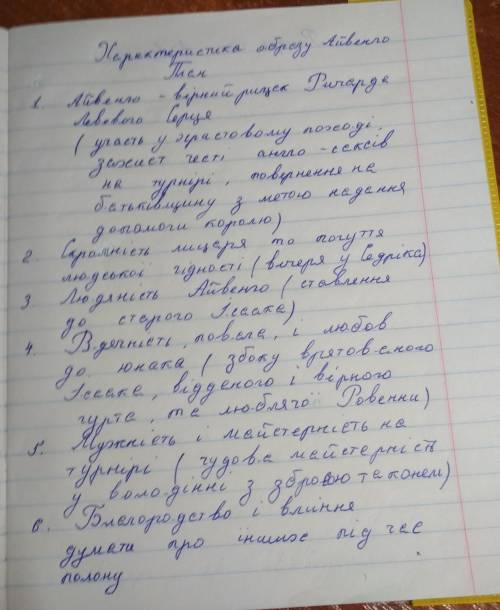 Характеристика образу Айвенго
План
1. Айвенго - вірний рицар Річарда
Левового Серця
( участь у хрестовому поході,
захист честі англо-саксів
на турнірі, повернення на
батьківщину з метою надання
допомоги королю)
2. Скромність лицаря та почуття
людської гідності ( вечеря у Седріка)
3. Людяність Айвенго ( ставлення
до старого Ісаака)
4. Вдячність, повага, і любов
до юнака ( збоку врятованого
Ісаака, відданого і вірного
гурта, та люблячої Ровени)
5. Мужність і майстерність на
турнірі ( чудова майстерність
у володінні з зброєю та конем)
6. Благородство і вміння
думати про інших під час
полону